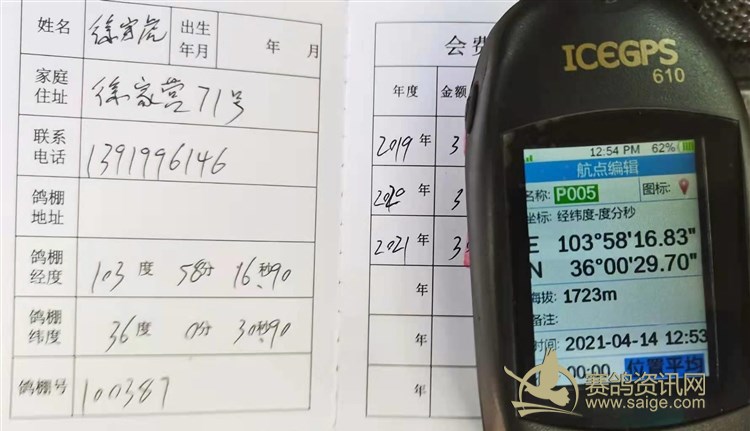 姓名 徐家虎 出生年月 年 月
家庭住址 徐家营71号
联系电话 1391996146
鸽棚地址
鸽棚经度 103度 58分 16秒.90
鸽棚纬度 36度 0分 30秒.90
鸽棚号 100387
会费
年度 金额
2019年 3
2020年 3
2021年 3
年
年
年
ICEGPS
610
12:54 PM 62%
航点编辑
名称: P005 图标:
坐标: 经纬度-度分秒
E 103°58'16.83"
N 36°00'29.70"
海拔: 1723m
备注:
时间: 2021-04-14 12:53
00:00 位置平均
赛鸽资讯网
www.saige.com